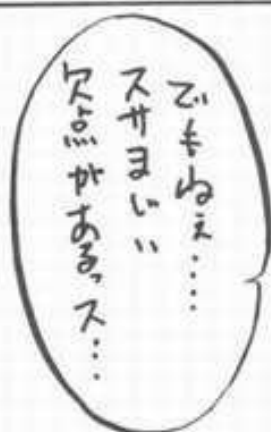 でもねぇ……
スサまじい
欠点があるっス…